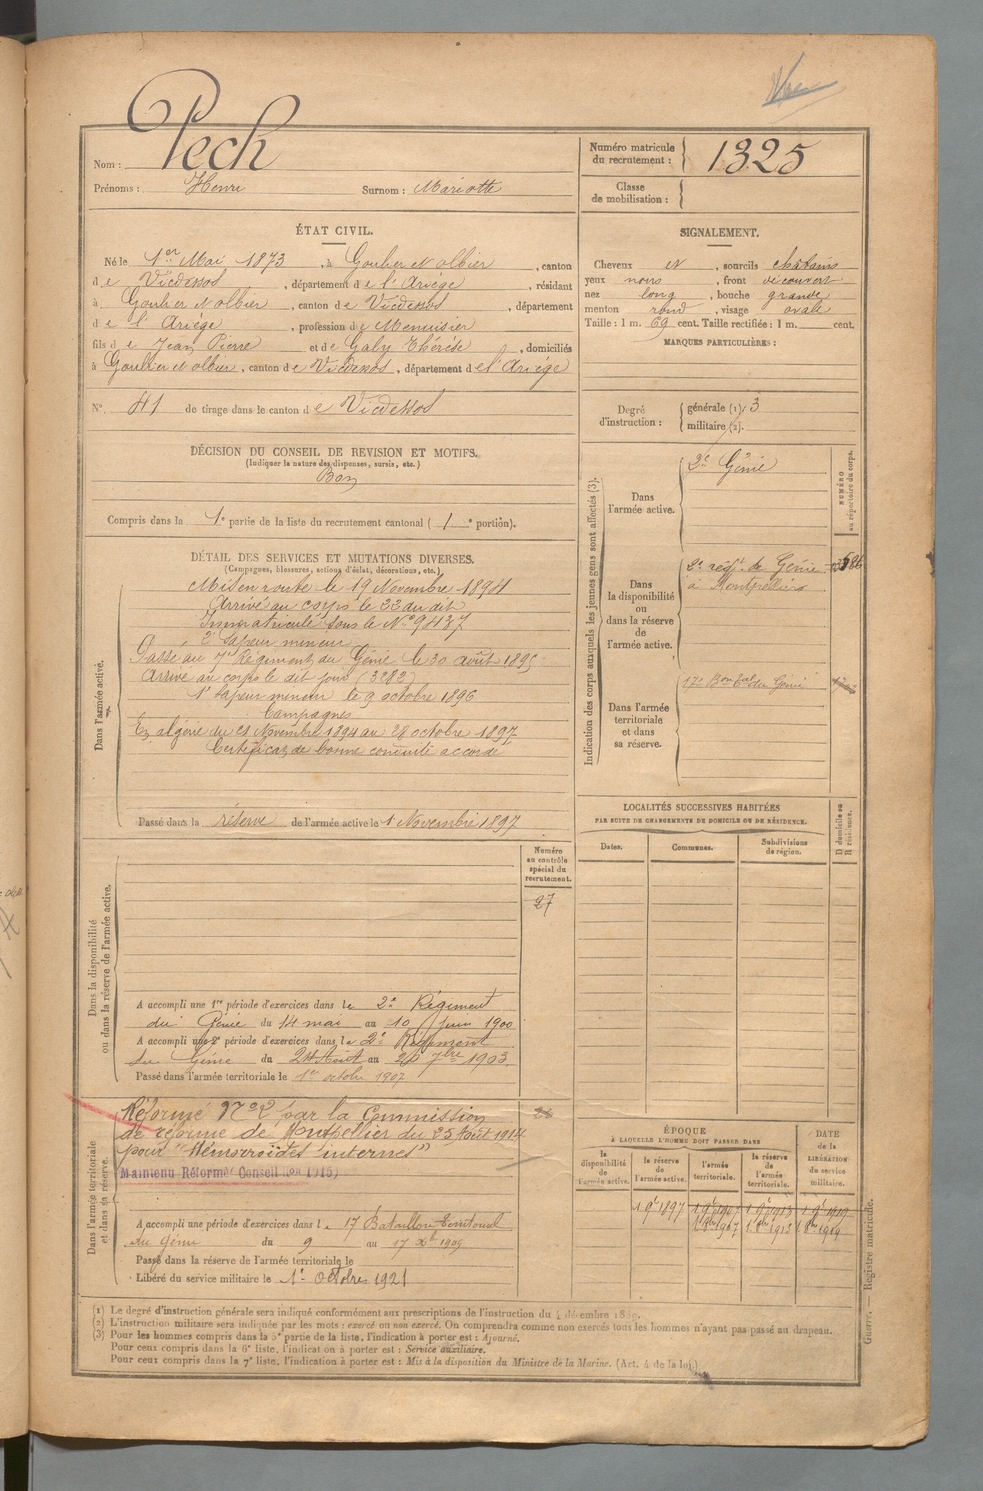 Nom : Pech
Prénoms : Henri Surnom : Mariotte
Numéro matricule du recrutement : 1325
Classe de mobilisation :
ÉTAT CIVIL.
Né le 1er Mai 1873, à Goulier et olbier, canton
de Vicdessos, département de l'Ariège, résidant
à Goulier et olbier, canton de Vicdessos, département
de l'Ariège, profession de Menuisier
fils de Jean Pierre et de Galy Thérèse, domiciliés
à Goulier et olbier, canton de Vicdessos, département de l'Ariége
N°. 41 de tirage dans le canton de Vicdessos
SIGNALEMENT.
Cheveux et, sourcils châtains
yeux noirs, front découvert
nez long, bouche grande
menton rond, visage ovale
Taille : 1 m. 69 cent. Taille rectifiée : 1 m. cent.
MARQUES PARTICULIÈRES :
Degré d'instruction : générale (1). 3
militaire (2).
DÉCISION DU CONSEIL DE REVISION ET MOTIFS.
(Indiquer la nature des dispenses, sursis, etc.)
Bon
Compris dans la 1e partie de la liste du recrutement cantonal ( 1e portion).
DÉTAIL DES SERVICES ET MUTATIONS DIVERSES.
(Campagnes, blessures, actions d'éclat, décorations, etc.)
Dans l'armée active.
Mis en route le 19 Novembre 1894
Arrivé au corps le 22 du dit
Immatriculé sous le N° 9437
2e Sapeur mineur
Passé au 7e Régiment du Génie le 30 août 1895
Arrivé au corps le dit jour (3282)
1e Sapeur mineur le 9 octobre 1896
Campagnes
En algérie du 21 Novembre 1894 au 28 octobre 1897
Certificat de bonne conduite accordé
Passé dans la réserve de l'armée active le 1 Novembre 1897
Indication des corps auxquels les jeunes gens sont affectés (3).
NUMÉRO au répertoire du corps.
Dans l'armée active.
2e Génie
Dans la disponibilité ou dans la réserve de l'armée active.
2e régt. de Génie
à Montpellier
Dans l'armée territoriale et dans sa réserve.
17e Bon Tal du Génie
LOCALITÉS SUCCESSIVES HABITÉES
PAR SUITE DE CHANGEMENTS DE DOMICILE OU DE RÉSIDENCE.
Dates. Communes. Subdivisions de région. D domicile ou R résidence.
Dans la disponibilité ou dans la réserve de l'armée active.
Numéro au contrôle spécial du recrutement.
27
A accompli une 1re période d'exercices dans le 2e Régiment
du Génie du 14 mai au 10 Juin 1900
A accompli une 2e période d'exercices dans le 2e Régiment
du Génie du 24 Août au 20 7bre 1903.
Passé dans l'armée territoriale le 1er octobre 1907
Dans l'armée territoriale et dans sa réserve.
Réformé N°2 par la Commission
de réforme de Montpellier du 25 Août 1914
pour "Hémoroïdes internes"
Maintenu Réformé Conseil 1915
A accompli une période d'exercices dans le 17 Bataillon Territorial
du Génie du 9 au 17 Xbre 1909
Passé dans la réserve de l'armée territoriale le
Libéré du service militaire le 1er Octobre 1921
ÉPOQUE
À LAQUELLE L'HOMME DOIT PASSER DANS
la disponibilité de l'armée active. la réserve de l'armée active. l'armée territoriale. la réserve de l'armée territoriale.
DATE de la LIBÉRATION du service militaire.
(1) Le degré d'instruction générale sera indiqué conformément aux prescriptions de l'instruction du 4 décembre 1889.
(2) L'instruction militaire sera indiquée par les mots : exercé ou non exercé. On comprendra comme non exercés tous les hommes n'ayant pas passé au drapeau.
(3) Pour les hommes compris dans la 5e partie de la liste, l'indication à porter est : Ajourné.
Pour ceux compris dans la 6e liste, l'indication à porter est : Service auxiliaire.
Pour ceux compris dans la 7e liste, l'indication à porter est : Mis à la disposition du Ministre de la Marine. (Art. 4 de la loi.)
Guerre. — Registre matricule.